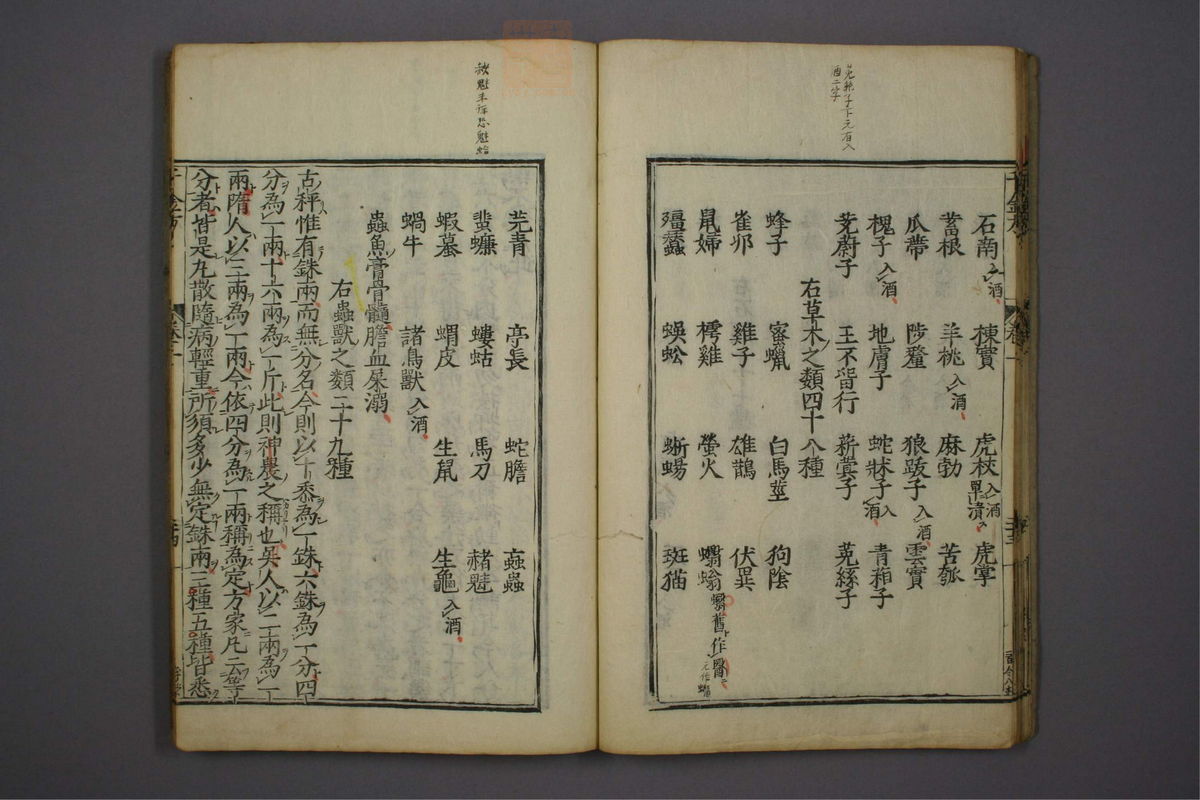 菟絲子下元有入
酒二字
石南入酒 楝實 虎杖入酒單漬 虎掌
蓄根 羊桃入酒 麻勃 苦瓠
瓜蒂 陟釐 狼跋子入酒 雲實
槐子入酒 地膚子 蛇牀子入酒 青葙子
茺蔚子 王不留行 菥蓂子 菟絲子
右草木之類四十八種
蜂子 蜜蠟 白馬莖 狗陰
雀卵 雞子 雄鵲 伏翼
鼠婦 樗雞 螢火 蠮螉蠮舊作醫元作蠮
殭蠶 蜈蚣 蜥蜴 斑猫
芫青 亭長 蛇膽 䖟蟲
蜚蠊 螻蛄 馬刀 赭魁
蝦蟇 蝟皮 生鼠 生龜入酒
蝸牛 諸鳥獸入酒
蟲魚膏骨髓膽血屎溺
右蟲獸之類二十九種
古秤惟有銖兩而無分名今則以十黍為一銖六銖為一分四
分為一兩十六兩為一斤此則神農之稱也吳人以二兩為一
兩隋人以三兩為一兩今依四分為一兩稱為定方家凡云等
分者皆是丸散隨病輕重所須多少無定銖兩三種五種皆悉